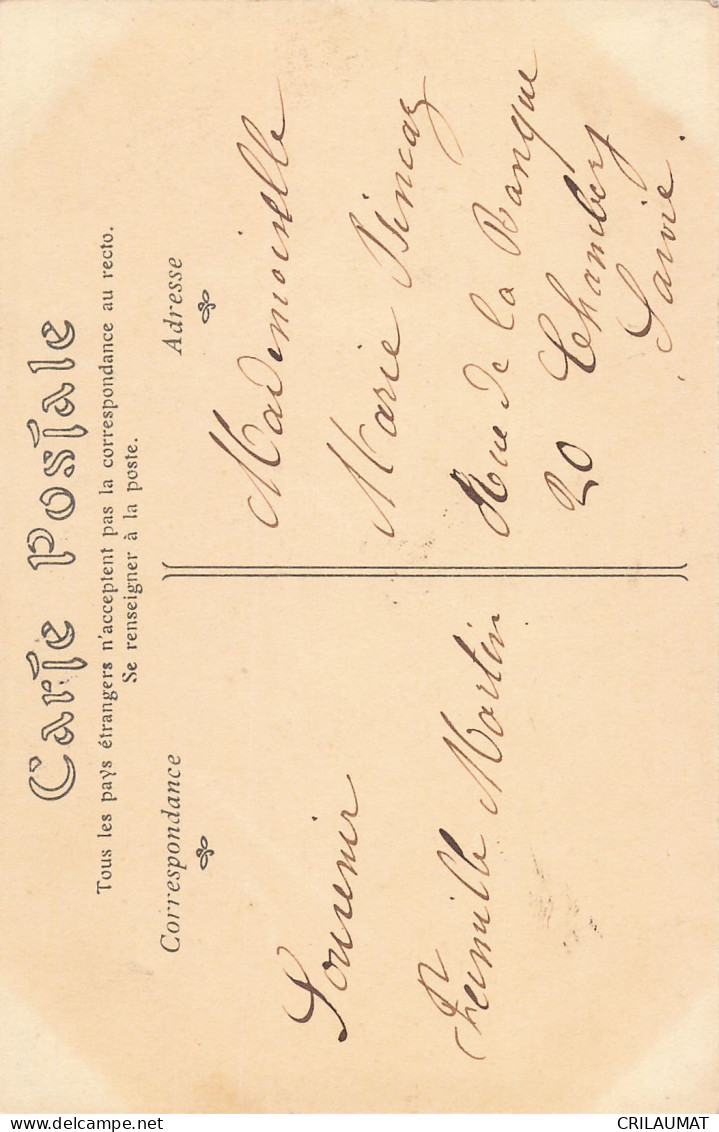 Carte Postale
Tous les pays étrangers n'acceptent pas la correspondance au recto.
Se renseigner à la poste.
Correspondance
Souvenir
Famille Martin
Adresse
Mademoiselle
Marie
Rue de la Banque
20 Chambery
Savoie
www.delcampe.net
CRILAUMAT